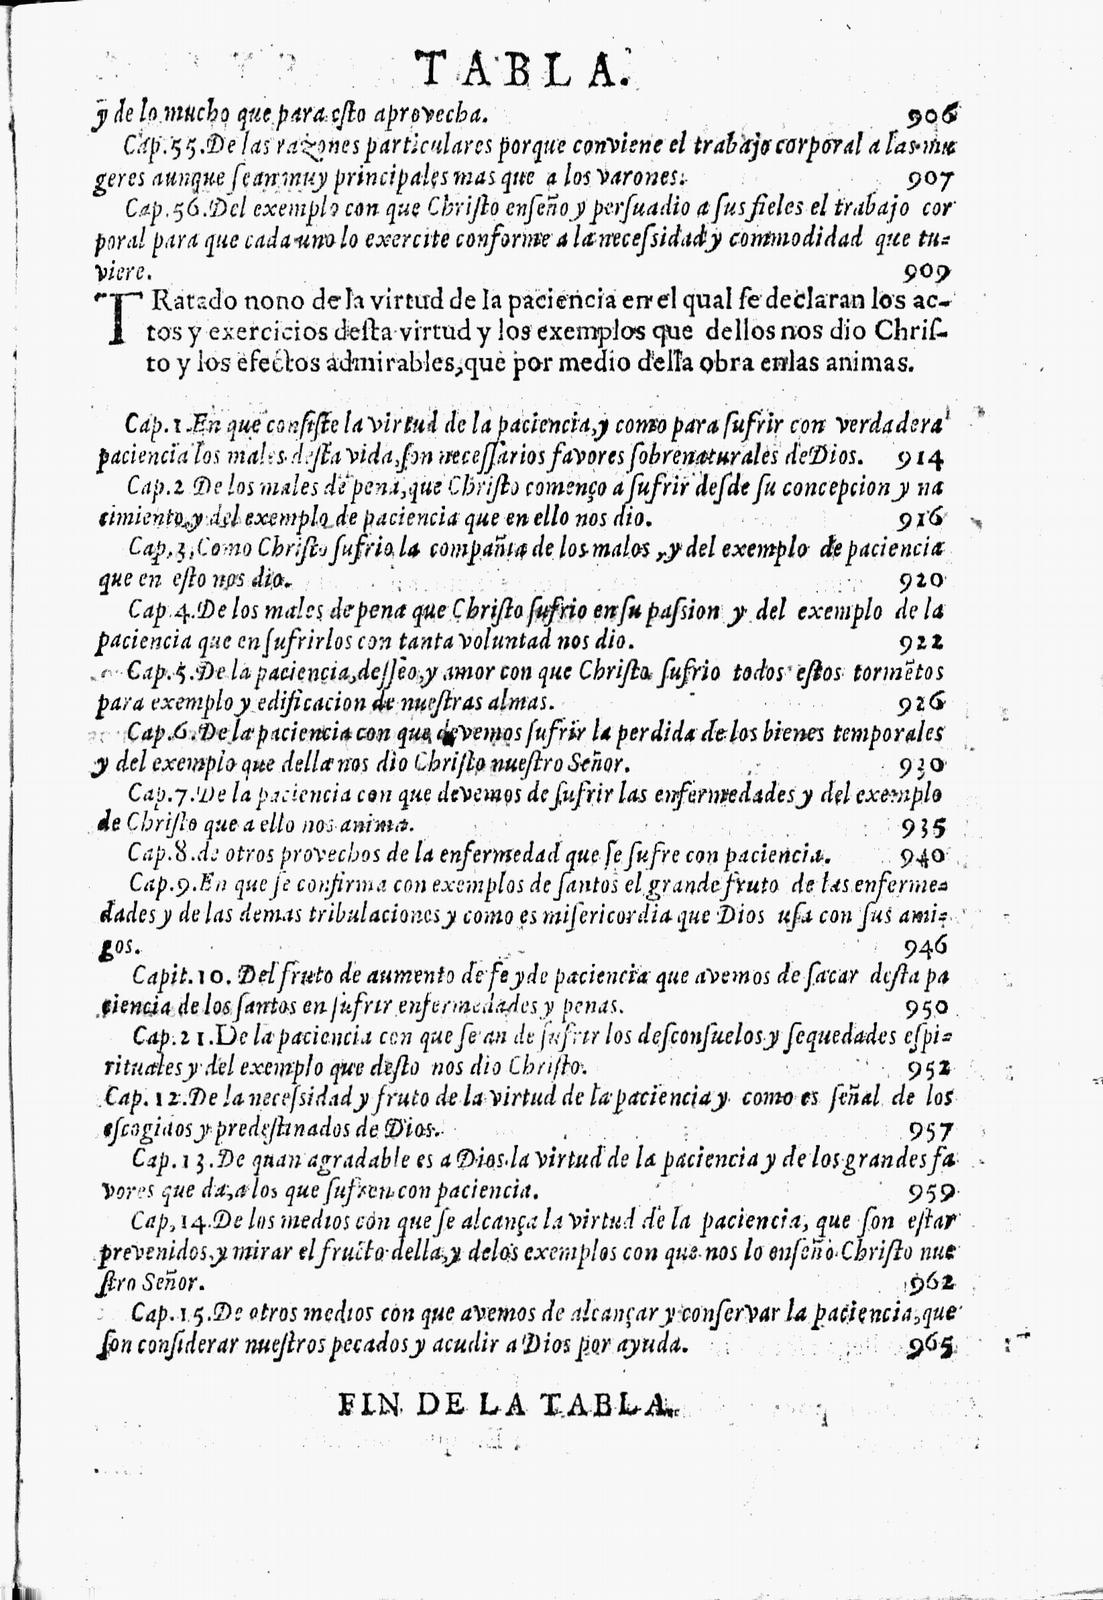 TABLA.
y de lo mucho que para esto aprovecha. 906
Cap.55.De las razones particulares porque conviene el trabajo corporal a las mu
geres aunque sean muy principales mas que a los varones. 907
Cap.56.Del exemplo con que Christo enseño y persuadio a sus fieles el trabajo cor
poral para que cada uno lo exercite conforme a la necessidad y commodidad que tu=
viere. 909
TRatado nono de la virtud de la paciencia en el qual se declaran los ac-
tos y exercicios desta virtud y los exemplos que dellos nos dio Chris-
to y los efectos admirables, que por medio della obra en las animas.
Cap.1.En que consiste la virtud de la paciencia, y como para sufrir con verdadera
paciencia los males desta vida, son necessarios favores sobrenaturales de Dios. 914
Cap.2 De los males de pena, que Christo començo a sufrir desde su concepcion y na
cimiento, y del exemplo de paciencia que en ello nos dio. 916
Cap.3.Como Christo sufrio la compañia de los malos, y del exemplo de paciencia
que en esto nos dio. 920
Cap.4.De los males de pena que Christo sufrio en su passion y del exemplo de la
paciencia que en sufrirlos con tanta voluntad nos dio. 922
Cap.5.De la paciencia, desseo, y amor con que Christo sufrio todos estos tormẽtos
para exemplo y edificacion de nuestras almas. 926
Cap.6.De la paciencia con que devemos sufrir la perdida de los bienes temporales
y del exemplo que della nos dio Christo nuestro Señor. 930
Cap.7.De la paciencia con que devemos de sufrir las enfermedades y del exemplo
de Christo que a ello nos anima. 935
Cap.8.de otros provechos de la enfermedad que se sufre con paciencia. 940
Cap.9.En que se confirma con exemplos de santos el grande fruto de las enferme=
dades y de las demas tribulaciones y como es misericordia que Dios usa con sus ami=
gos. 946
Capit.10. Del fruto de aumento de fe y de paciencia que avemos de sacar desta pa
ciencia de los santos en sufrir enfermedades y penas. 950
Cap.21.De la paciencia con que se an de sufrir los desconsuelos y sequedades espi=
rituales y del exemplo que desto nos dio Christo. 952
Cap.12.De la necessidad y fruto de la virtud de la paciencia y como es señal de los
escogidos y predestinados de Dios. 957
Cap.13.De quan agradable es a Dios la virtud de la paciencia y de los grandes fa
vores que da, a los que sufren con paciencia. 959
Cap,14.De los medios con que se alcança la virtud de la paciencia, que son estar
prevenidos, y mirar el fructo della, y de los exemplos con que nos lo enseño Christo nue
stro Señor. 962
Cap.15.De otros medios con que avemos de alcançar y conservar la paciencia, que
son considerar nuestros pecados y acudir a Dios por ayuda. 965
FIN DE LA TABLA.